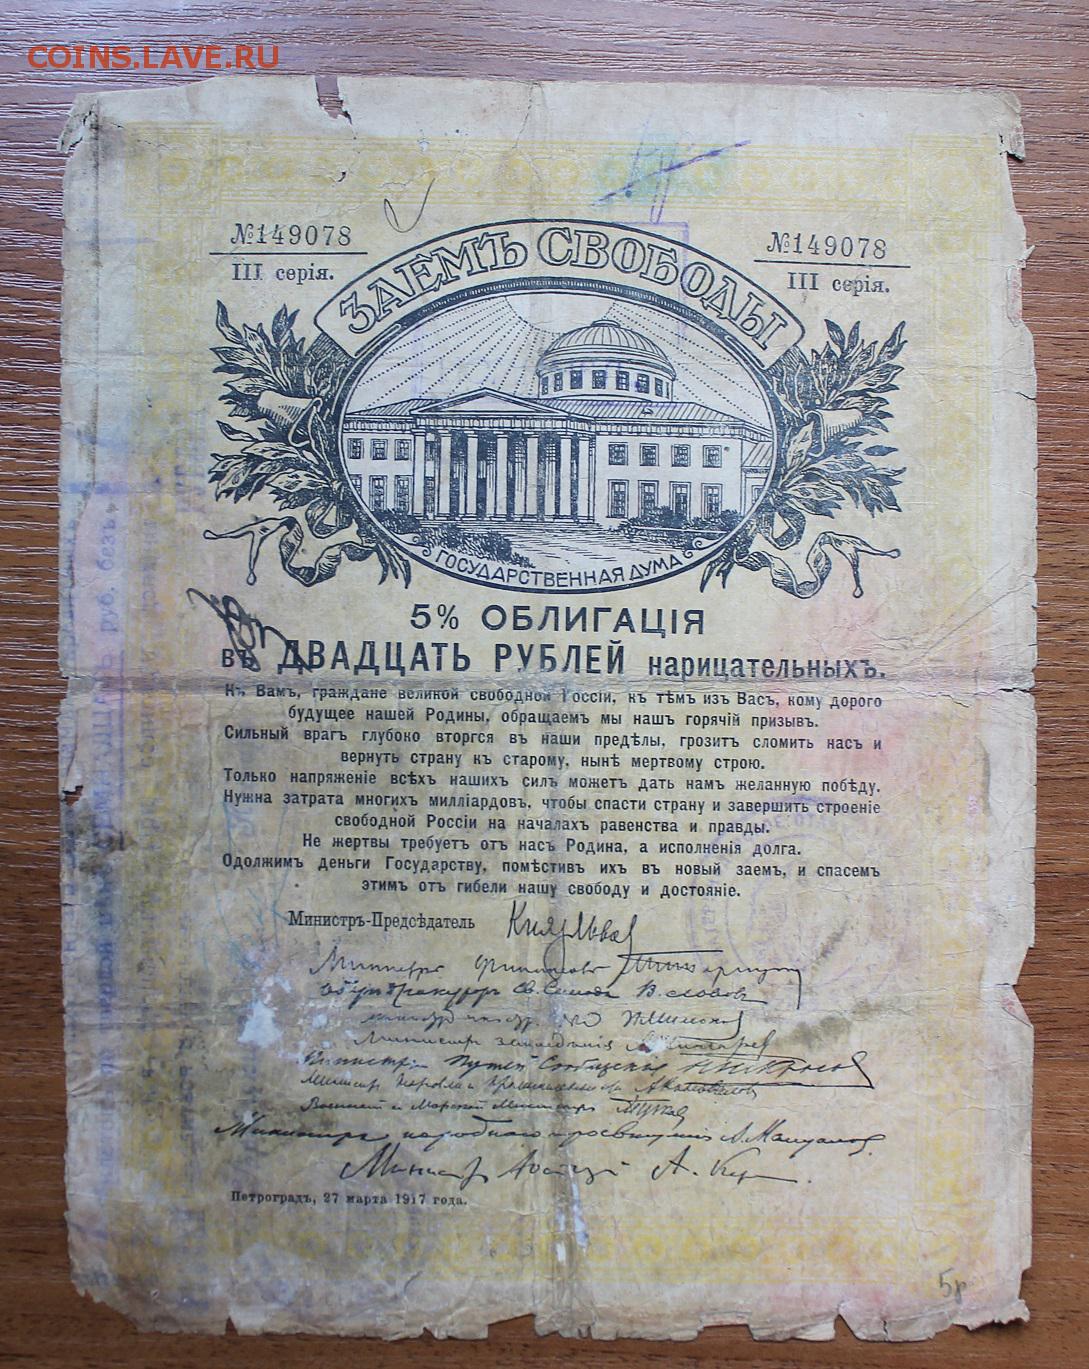 COINS.LAVE.RU
№149078
III серія.
ЗАЕМЪ СВОБОДЫ
№149078
III серія.
ГОСУДАРСТВЕННАЯ ДУМА
5% ОБЛИГАЦІЯ
въ ДВАДЦАТЬ РУБЛЕЙ нарицательныхъ.
Къ Вамъ, граждане великой свободной Россіи, къ тѣмъ изъ Васъ, кому дорого
будущее нашей Родины, обращаемъ мы нашъ горячій призывъ.
Сильный врагъ глубоко вторгся въ наши предѣлы, грозитъ сломить насъ и
вернуть страну къ старому, нынѣ мертвому строю.
Только напряженіе всѣхъ нашихъ силъ можетъ дать намъ желанную побѣду.
Нужна затрата многихъ милліардовъ, чтобы спасти страну и завершить строеніе
свободной Россіи на началахъ равенства и правды.
Не жертвы требуетъ отъ насъ Родина, а исполненія долга.
Одолжимъ деньги Государству, помѣстивъ ихъ въ новый заемъ, и спасемъ
этимъ отъ гибели нашу свободу и достояніе.
Министръ-Предсѣдатель Князь Львов
Министръ Финансовъ
Оберъ Прокуроръ Св. Синода В. Львовъ
Министр земледѣлия
Министръ Путей Сообщенія
Министр Торговли и Промышленности А Коновалов
Военный и Морской Министръ
Министръ народного просвещения А. Мануилов.
Министр Юстиции А. Кер
Петроградъ, 27 марта 1917 года.
5р